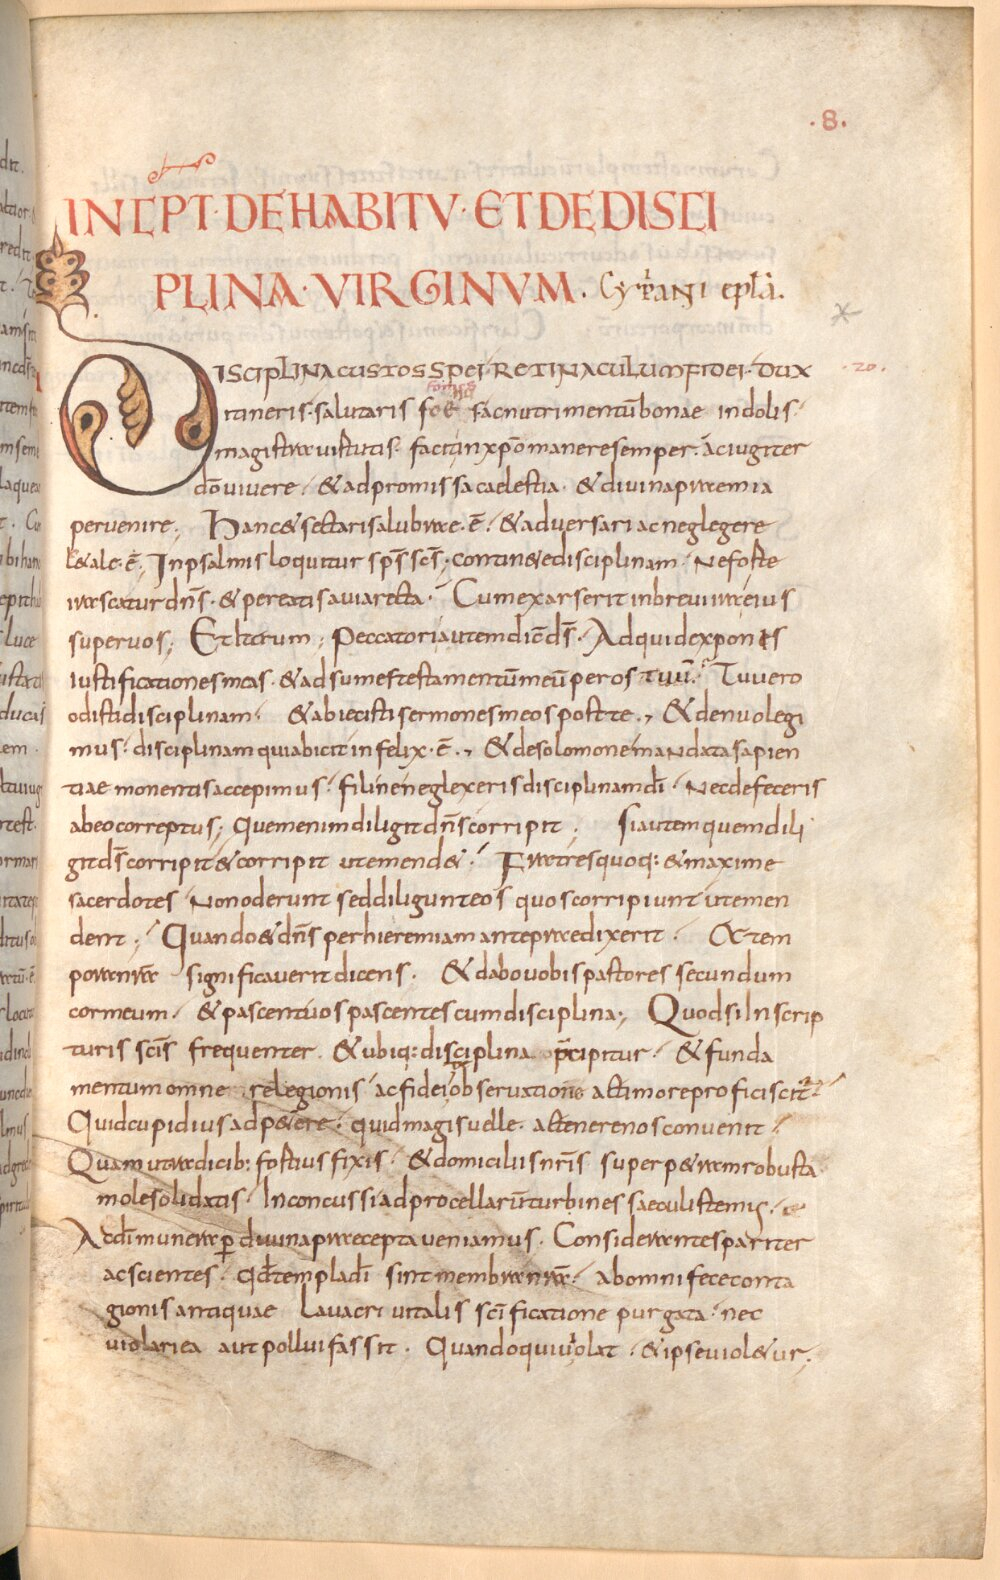 .8.
INCPT·DEHABITV·ETDEDISCI
PLINA·VIRGINVM. Cypriani epłā.
.20.
DISCIPLINA CUSTOS SPEI. RETINACULUM FIDEI. DUX
itineris salutaris fomes ac nutrimentū bonae indolis
magistra virtutis. facit in xp̄o manere semper. ac iugiter
dō vivere & ad promissa caelestia. & divina praemia
pervenire; Hanc & sectari salubrae. ē. & adversari ac neglegere
letale. ē; In psalmis loquitur sp̄s sc̄s; continete disciplinam. Ne forte
irascatur dn̄s. & pereatis a via recta. Cum exarserit in brevi ira eius
super vos; Et iterum; Peccatori autem dic̄ d̄s. Ad quid exponis
iustificationes meas. & adsumes testamentū meū per os tuū. Tu vero
odisti disciplinam. & abiecisti sermones meos post te., & denuo legi
mus. disciplinam qui abicit infelix. ē., & de solomone mandata sapien
tiae monentis accepimus. fili ne neglexeris disciplinam dī. Nec defeceris
ab eo correptus; quem enim diligit dn̄s corripit; si autem quem dili
git d̄s corripit & corripit ut emendet. Fratres quoq: & maxime
sacerdotes Non oderunt sed diligunt eos quos corripiunt ut emen
dent; Quando & dn̄s per hieremiam ante praedixerit. & tem
pora nr̄a significaverit dicens. & dabo vobis pastores secundum
cor meum. & pascent vos pascentes cum disciplina; Quod si In scrip
turis sc̄is frequenter & ubiq: disciplina praecipitur. & funda
mentum omne relegionis ac fidei observatione ac timore proficiscit̄
Quid cupidius adpetere. quid magis velle. ac tenere nos convenit
Quam ut radicib: fortius fixis. & domiciliis nr̄is super petram robusta
mole solidatis. Inconcussi ad procellas & turbines saeculi stemus.
Ac dī munera p̱ divina praecepta veniamus. Considerantes pariter
ac scientes. qđ templa dī sint membra nr̄a. ab omni fece conta
gionis antiquae lavacri vitalis sc̄ificatione purgata. nec
violari ea aut pollui fas sit. Quando qui violat. & ipse violetur;